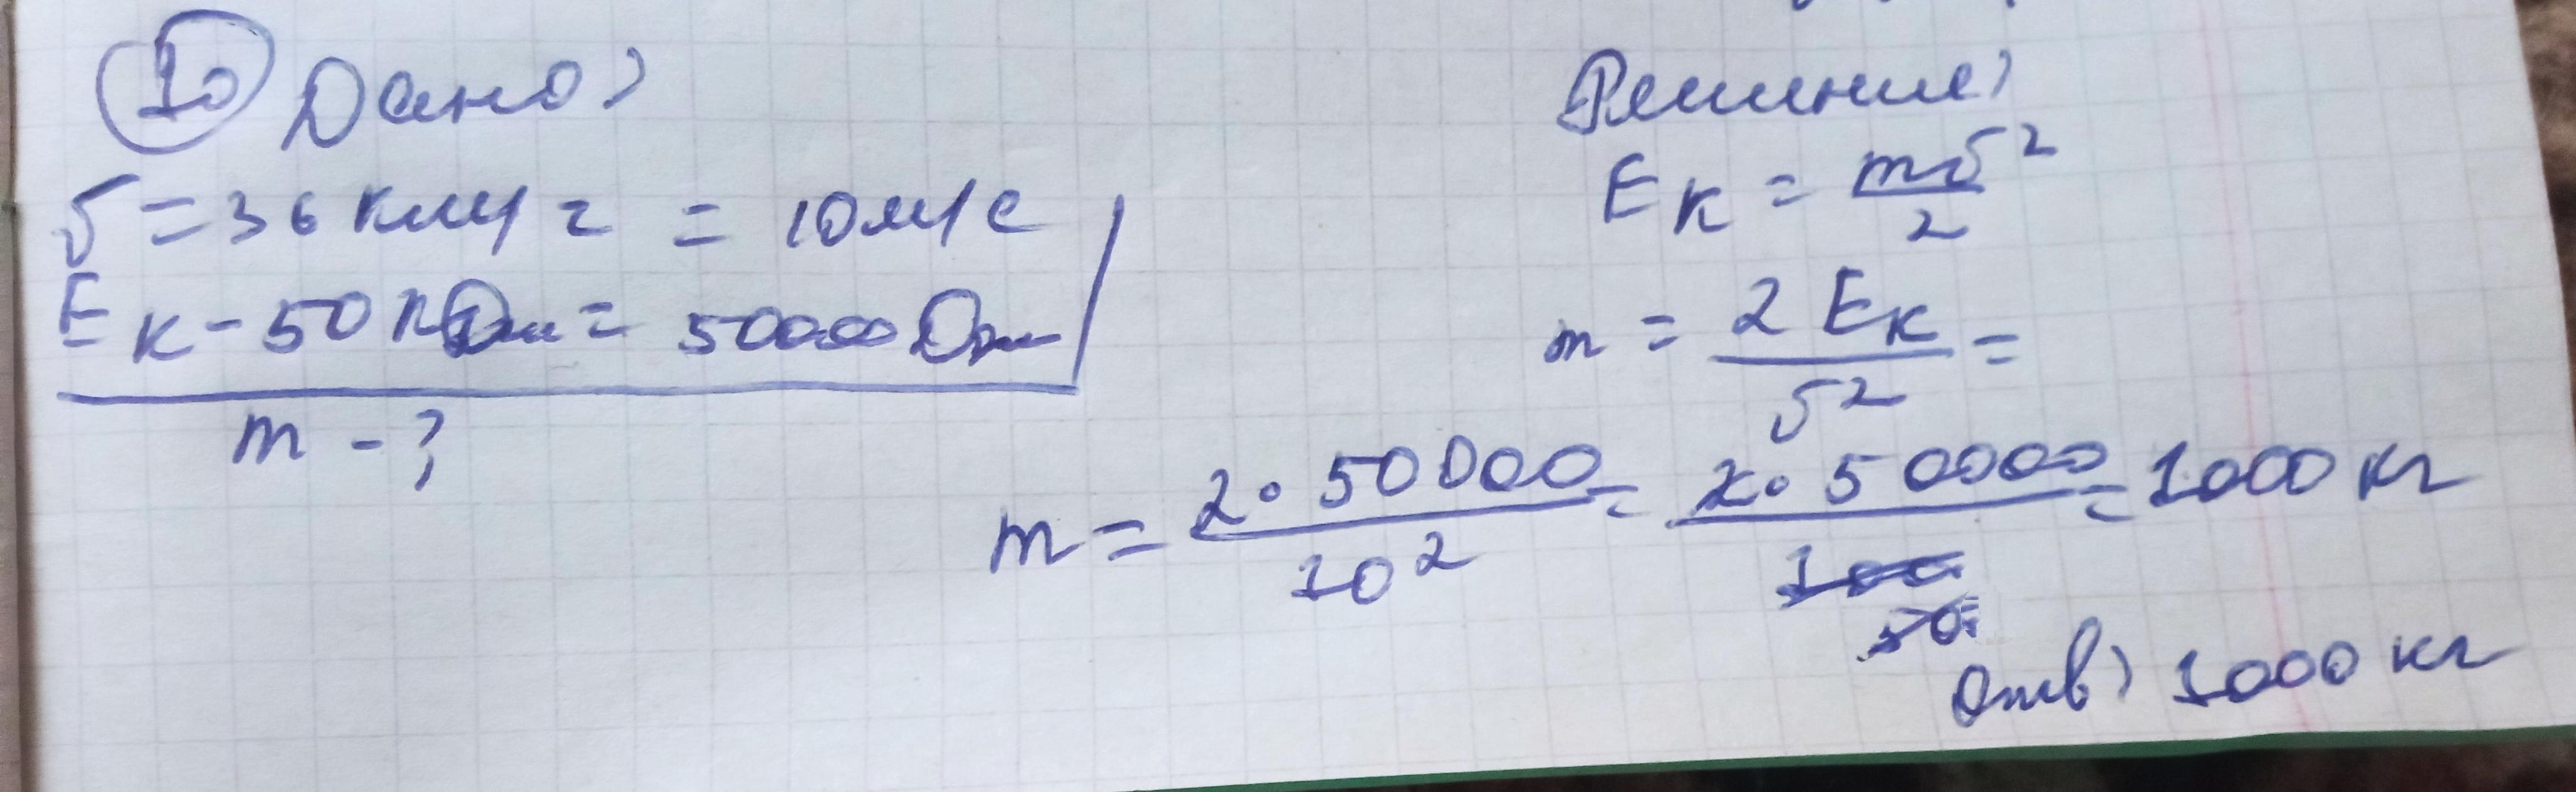 10 Дано:
υ = 36 км/ч = = 10 м/с
Eк - 50 кДж = 50000 Дж
m - ?
Решение:
Eк = mυ²/2
m = 2 Eк/υ² =
m = 2 · 50000/10² = 2 · 50000/100 = 1000 кг
50
Отв: 1000 кг